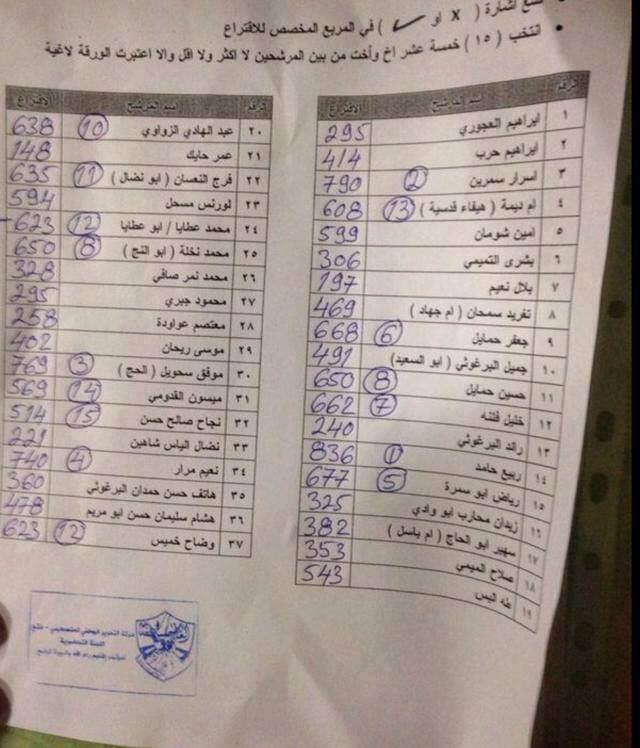 ضع اشارة ( X او ✓ ) في المربع المخصص للاقتراع
• انتخب ( ١٥ ) خمسة عشر اخ وأخت من بين المرشحين لا اكثر ولا اقل والا اعتبرت الورقة لاغية
الرقم اسم المرشح الاقتراع
١ ابراهيم العجوري 295
٢ ابراهيم حرب 414
٣ اسرار سمرين ② 790
٤ ام ديمة ( هيفاء قدسية ) ⑬ 608
٥ امين شومان 599
٦ بشرى التميمي 306
٧ بلال نعيم 197
٨ تغريد سمحان ( ام جهاد ) 469
٩ جعفر حمايل ⑥ 668
١٠ جميل البرغوثي ( ابو السعيد ) 491
١١ حسين حمايل ⑧ 650
١٢ خليل فتنه ⑦ 662
١٣ رائد البرغوثي 240
١٤ ربيع حامد ① 836
١٥ رياض ابو سمرة ⑤ 677
١٦ زيدان محارب ابو وادي 325
١٧ سهير ابو الحاج ( ام باسل ) 382
١٨ صلاح الميمي 353
١٩ طه البس 543
الرقم اسم المرشح الاقتراع
٢٠ عبد الهادي الزواوي ⑩ 638
٢١ عمر حايك 148
٢٢ فرج النعسان ( ابو نضال ) ⑪ 635
٢٣ لورنس مسحل 594
٢٤ محمد عطايا / ابو عطايا ⑫ 623
٢٥ محمد نخلة ( ابو النج ) ⑧ 650
٢٦ محمد نمر صافي 328
٢٧ محمود جبري 295
٢٨ معتصم عواودة 258
٢٩ موسى ريحان 402
٣٠ موفق سحويل ( الحج ) ③ 769
٣١ ميسون القدومي ⑭ 569
٣٢ نجاح صالح حسن ⑮ 514
٣٣ نضال الياس شاهين 221
٣٤ نعيم مرار ④ 740
٣٥ هاتف حسن حمدان البرغوثي 360
٣٦ هشام سليمان حسن ابو مريم 478
٣٧ وضاح خميس ⑫ 623
حركة التحرير الوطني الفلسطيني - فتح
اللجنة التحضيرية
لمؤتمر إقليم رام الله والبيرة الرابع